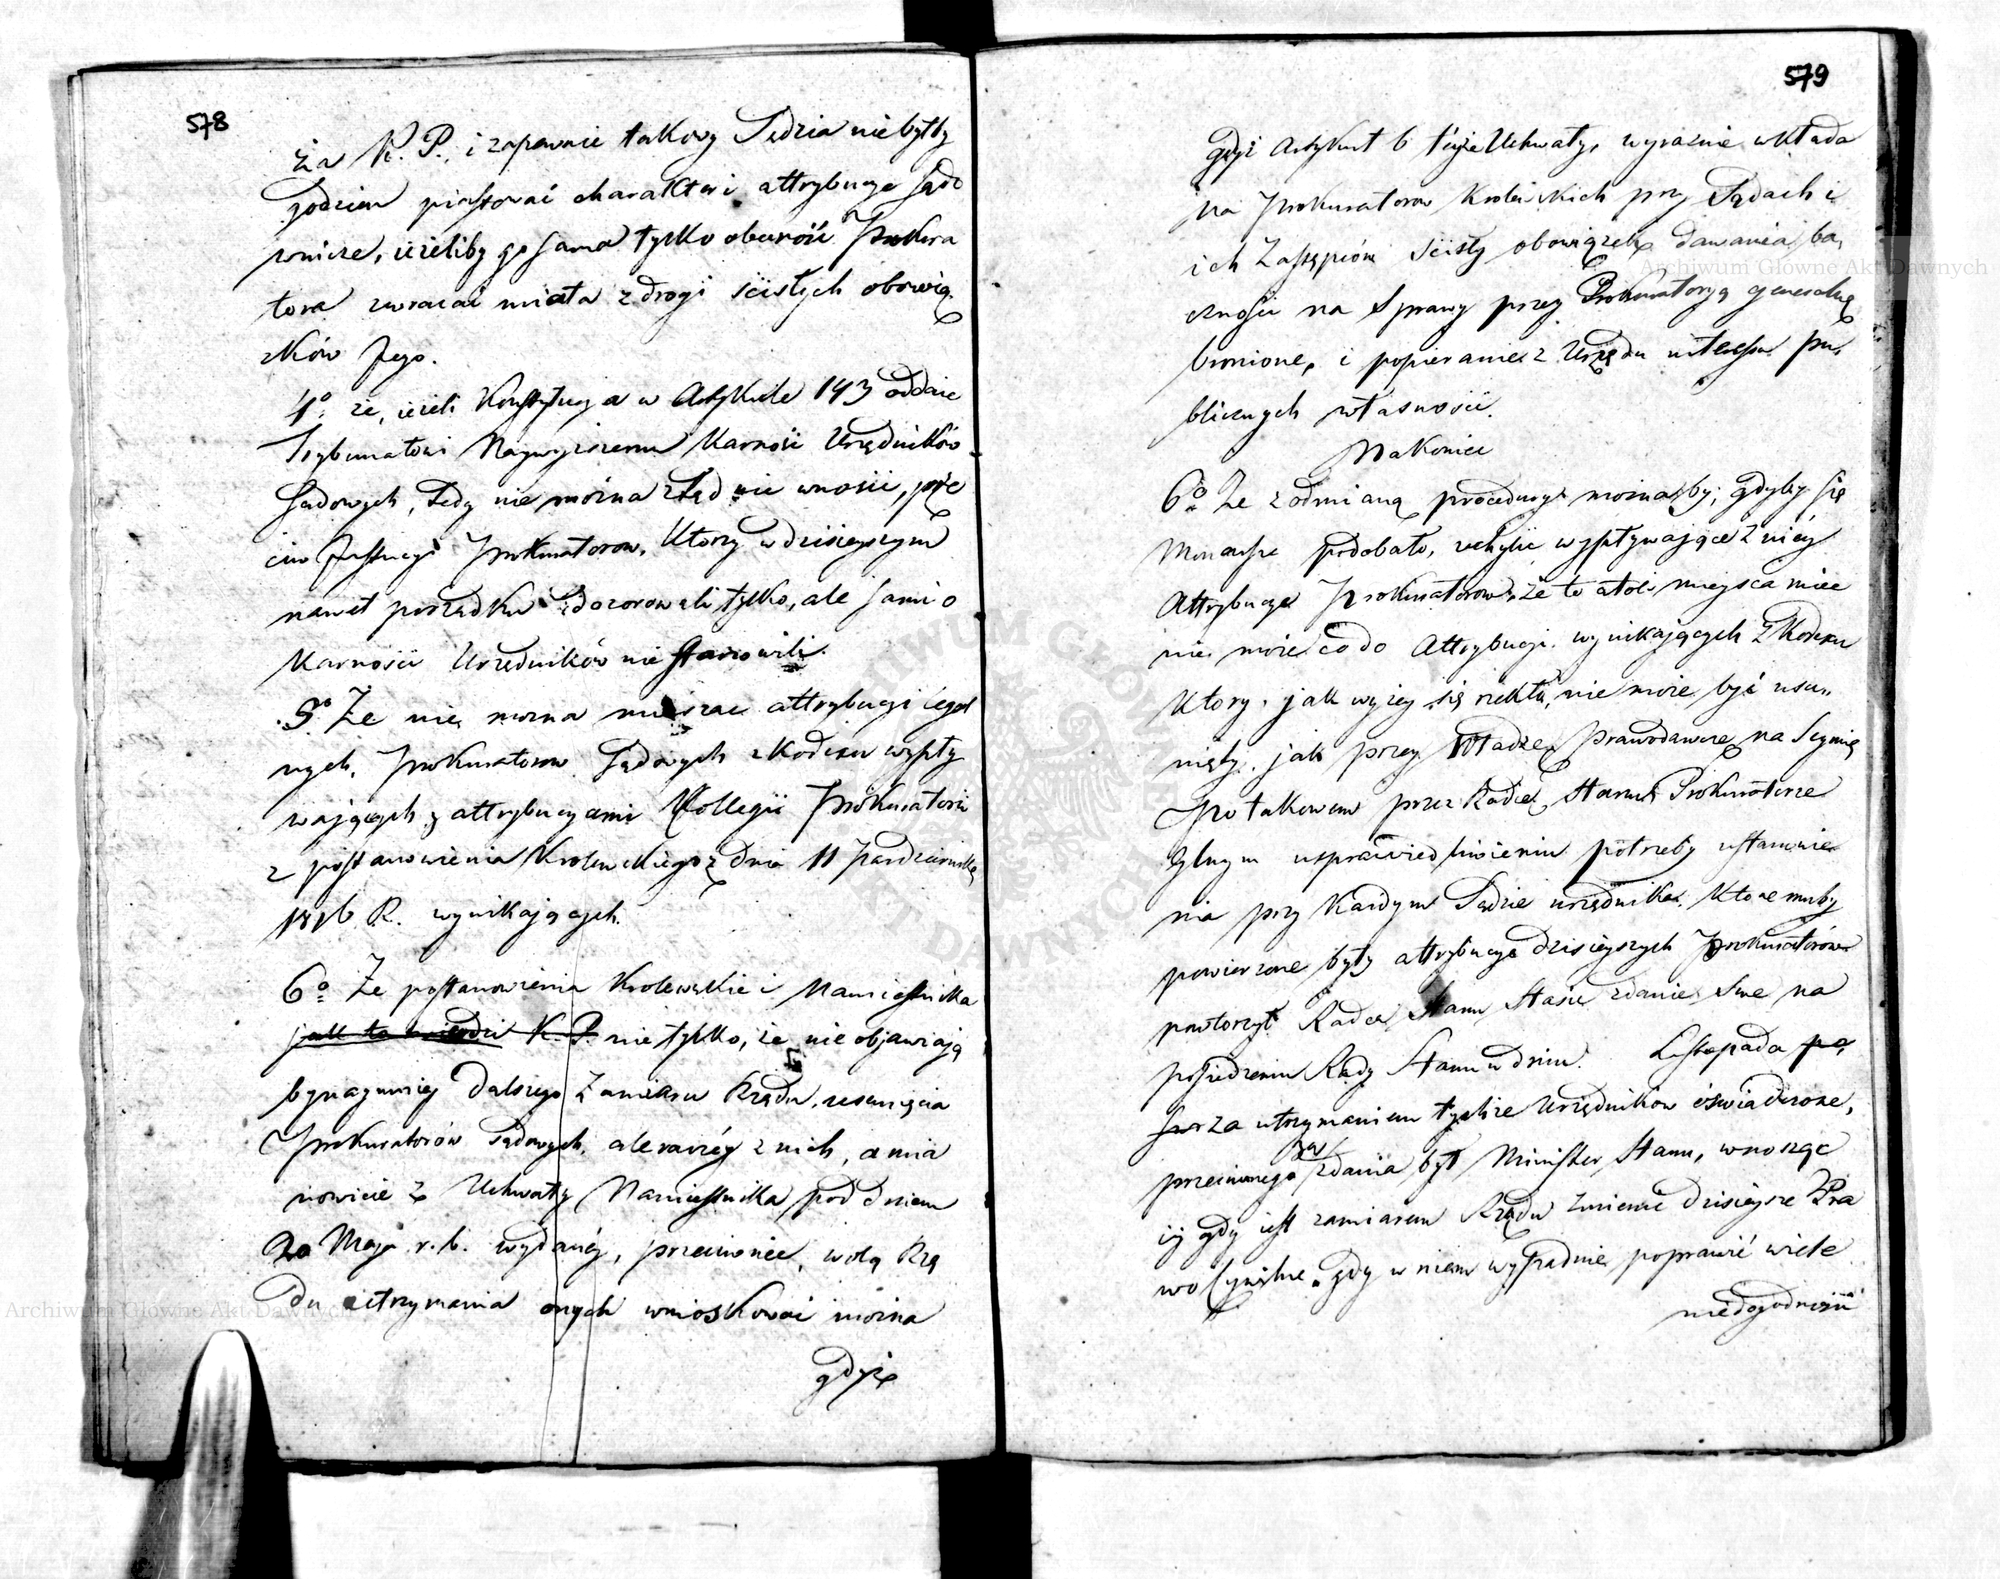 578
ża K. P., i zapewnie takowy Sędzia niebyłby
godzien piastować charakter i attrybucye sądo
wnicze, ieżeliby go sama tylko obecność Prokura
tora zwracać miała z drogi ścisłych obowią
zków Jego.
4o: że, ieżeli Konstytucya w Artykule 143 oddaie
Trybunałowi Naywyższemu Karność Urzędników
Sądowych, tedy nie można ztąd nic wnosić, prze
ciw Instucyi Prokuratorow, Ktorzy w dzisieyszym
nawet porządku dozorowali tylko, ale sami o
Karności Urzędników nie stanowili.
5o Że nie można mieszać attrybucyi legal
nych, Prokuratorow Sądowych z Kodexu wypły
waiących z attrybucyami Kollegii Prokuratorii
z postanowienia Krolewskiego z dnia 11 Pazdziernika
1816 R. wynikaiących.
6o Że postanowienia Krolewskie i Namiestnika
jak to twierdzi K. P. nie tylko, że nie objawiaią
bynaymniey dalszego zamiaru Rządu, usunięcia
Prokuratorów Sądowych, ale raczéy z nich, a mia
nowicie z Uchwały Namiestnika pod dniem
20 Maja r. b. wydanéy, przeciwnie, wolą Rzą
du utrzymania onych wnioskować można
gdyż
579
gdyż Artykuł 6 teyże Uchwały, wyraźnie wkłada
na Prokuratorow Krolewskich przy Sądach i
ich Zastępców ścisły obowiązek dawania ba,
czności na Sprawy przez Prokuratoryą generalną
bronione, i popieranie z Urzędu interessu pu,
blicznych własności.
Nakoniec
6o Że z odmianą procedury możnaby, gdyby się
Monarsze podobało, uchylić wypływaiące z niéy
Attrybucye Prokuratorow, że to atoli mieysca mieć
nie może co do Attrybucyi wynikaiących z Kodexu
Ktory, jak wyżey się rzekło, nie może być usu,,
nięty, jak przez Władzę Prawodawczą na Seymie
Po takowem przez Radcę Stanu Prokuratora
Glnym usprawiedliwieniu potrzeby ustanowie
nia przy Każdym Sądzie urzędnika, Ktoremuby
powierzone były attrybucye dzisieyszych Prokuratórow
powtorzył Radca Stanu Stasic zdanie Swe na
posiedzeniu Rady Stanu w dniu Listopada po,
za utrzymaniem tychże Urzędników oświadczone,
przeciwnego zaś zdania był Minister Stanu, wnosząc
iż gdy iest zamiarem Rządu zmienić dzisieysze Pra
wo Cywilne, gdy w niem wypadnie poprawić wiele
niedogodności
Archiwum Główne Akt Dawnych
Archiwum Główne Akt Dawnych